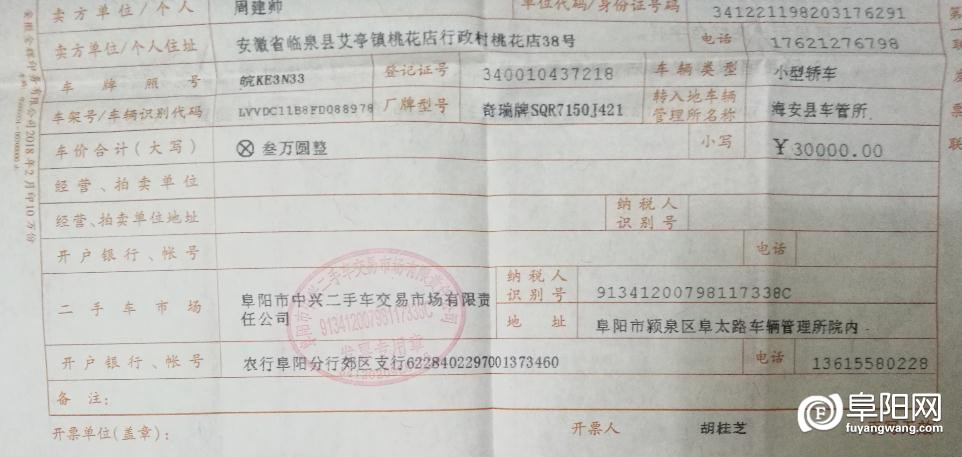 卖方单位/个人 周建帅 单位代码/身份证号码 341221198203176291
卖方单位/个人住址 安徽省临泉县艾亭镇桃花店行政村桃花店38号 电话 17621276798
车牌照号 皖KE3N33 登记证号 340010437218 车辆类型 小型轿车
车架号/车辆识别代码 LVVDC11B8FD088978 厂牌型号 奇瑞牌SQR7150J421 转入地车辆管理所名称 海安县车管所
车价合计(大写) ⊗ 叁万圆整 小写 ¥30000.00
经营、拍卖单位
经营、拍卖单位地址 纳税人识别号
开户银行、帐号 电话
二手车市场 阜阳市中兴二手车交易市场有限责任公司 纳税人识别号 91341200798117338C
地址 阜阳市颍泉区阜太路车辆管理所院内
开户银行、帐号 农行阜阳分行郊区支行6228402297001373460 电话 13615580228
备注:
开票单位(盖章): 开票人 胡桂芝
91341200798117338C
发票专用章
阜阳网
fuyangwang.com